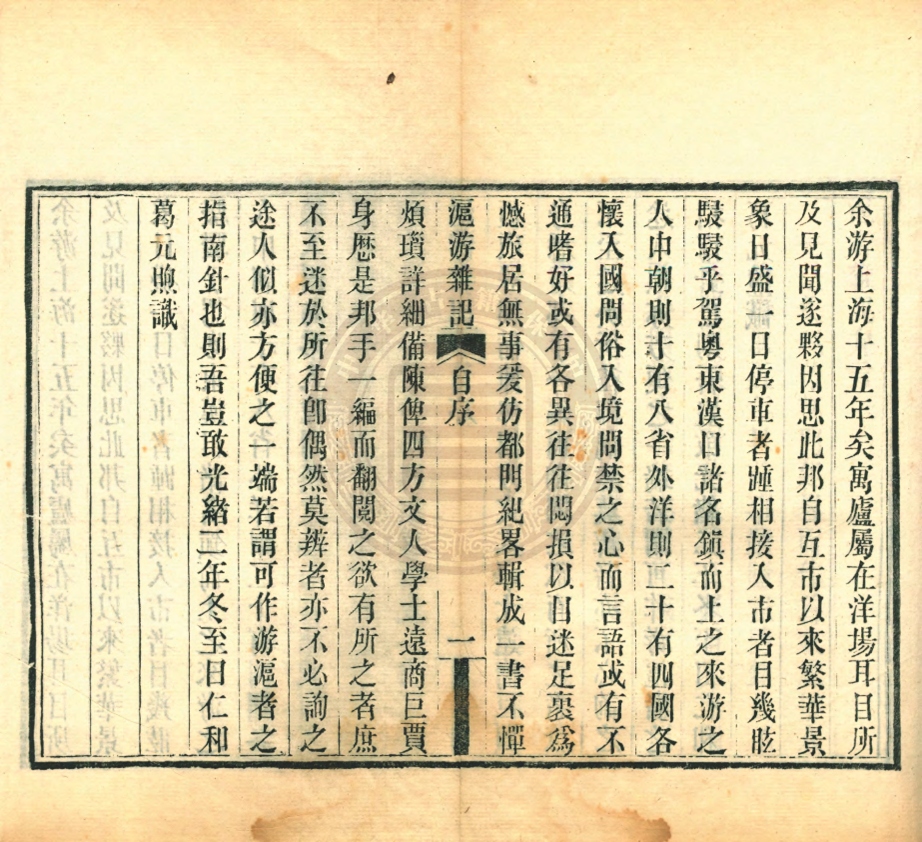 余游上海十五年矣寓廬屬在洋場耳目所
及見聞遂夥因思此邦自互市以來繁華景
象日盛一日停車者踵相接入市者目幾眩
駸駸乎駕粵東漢口諸名鎮而上之來游之
人中朝則十有八省外洋則二十有四國各
懷入國問俗入境問禁之心而言語或有不
通嗜好或有各異往往悶損以目迷足裹爲
憾旅居無事爰仿都門紀畧輯成一書不憚
滬游雜記 自序 一
煩瑣詳細備陳俾四方文人學士遠商巨賈
身歷是邦手一編而翻閱之欲有所之者庶
不至迷於所往卽偶然莫辨者亦不必詢之
途人似亦方便之一端若謂可作游滬者之
指南針也則吾豈敢光緒二年冬至日仁和
葛元煦識